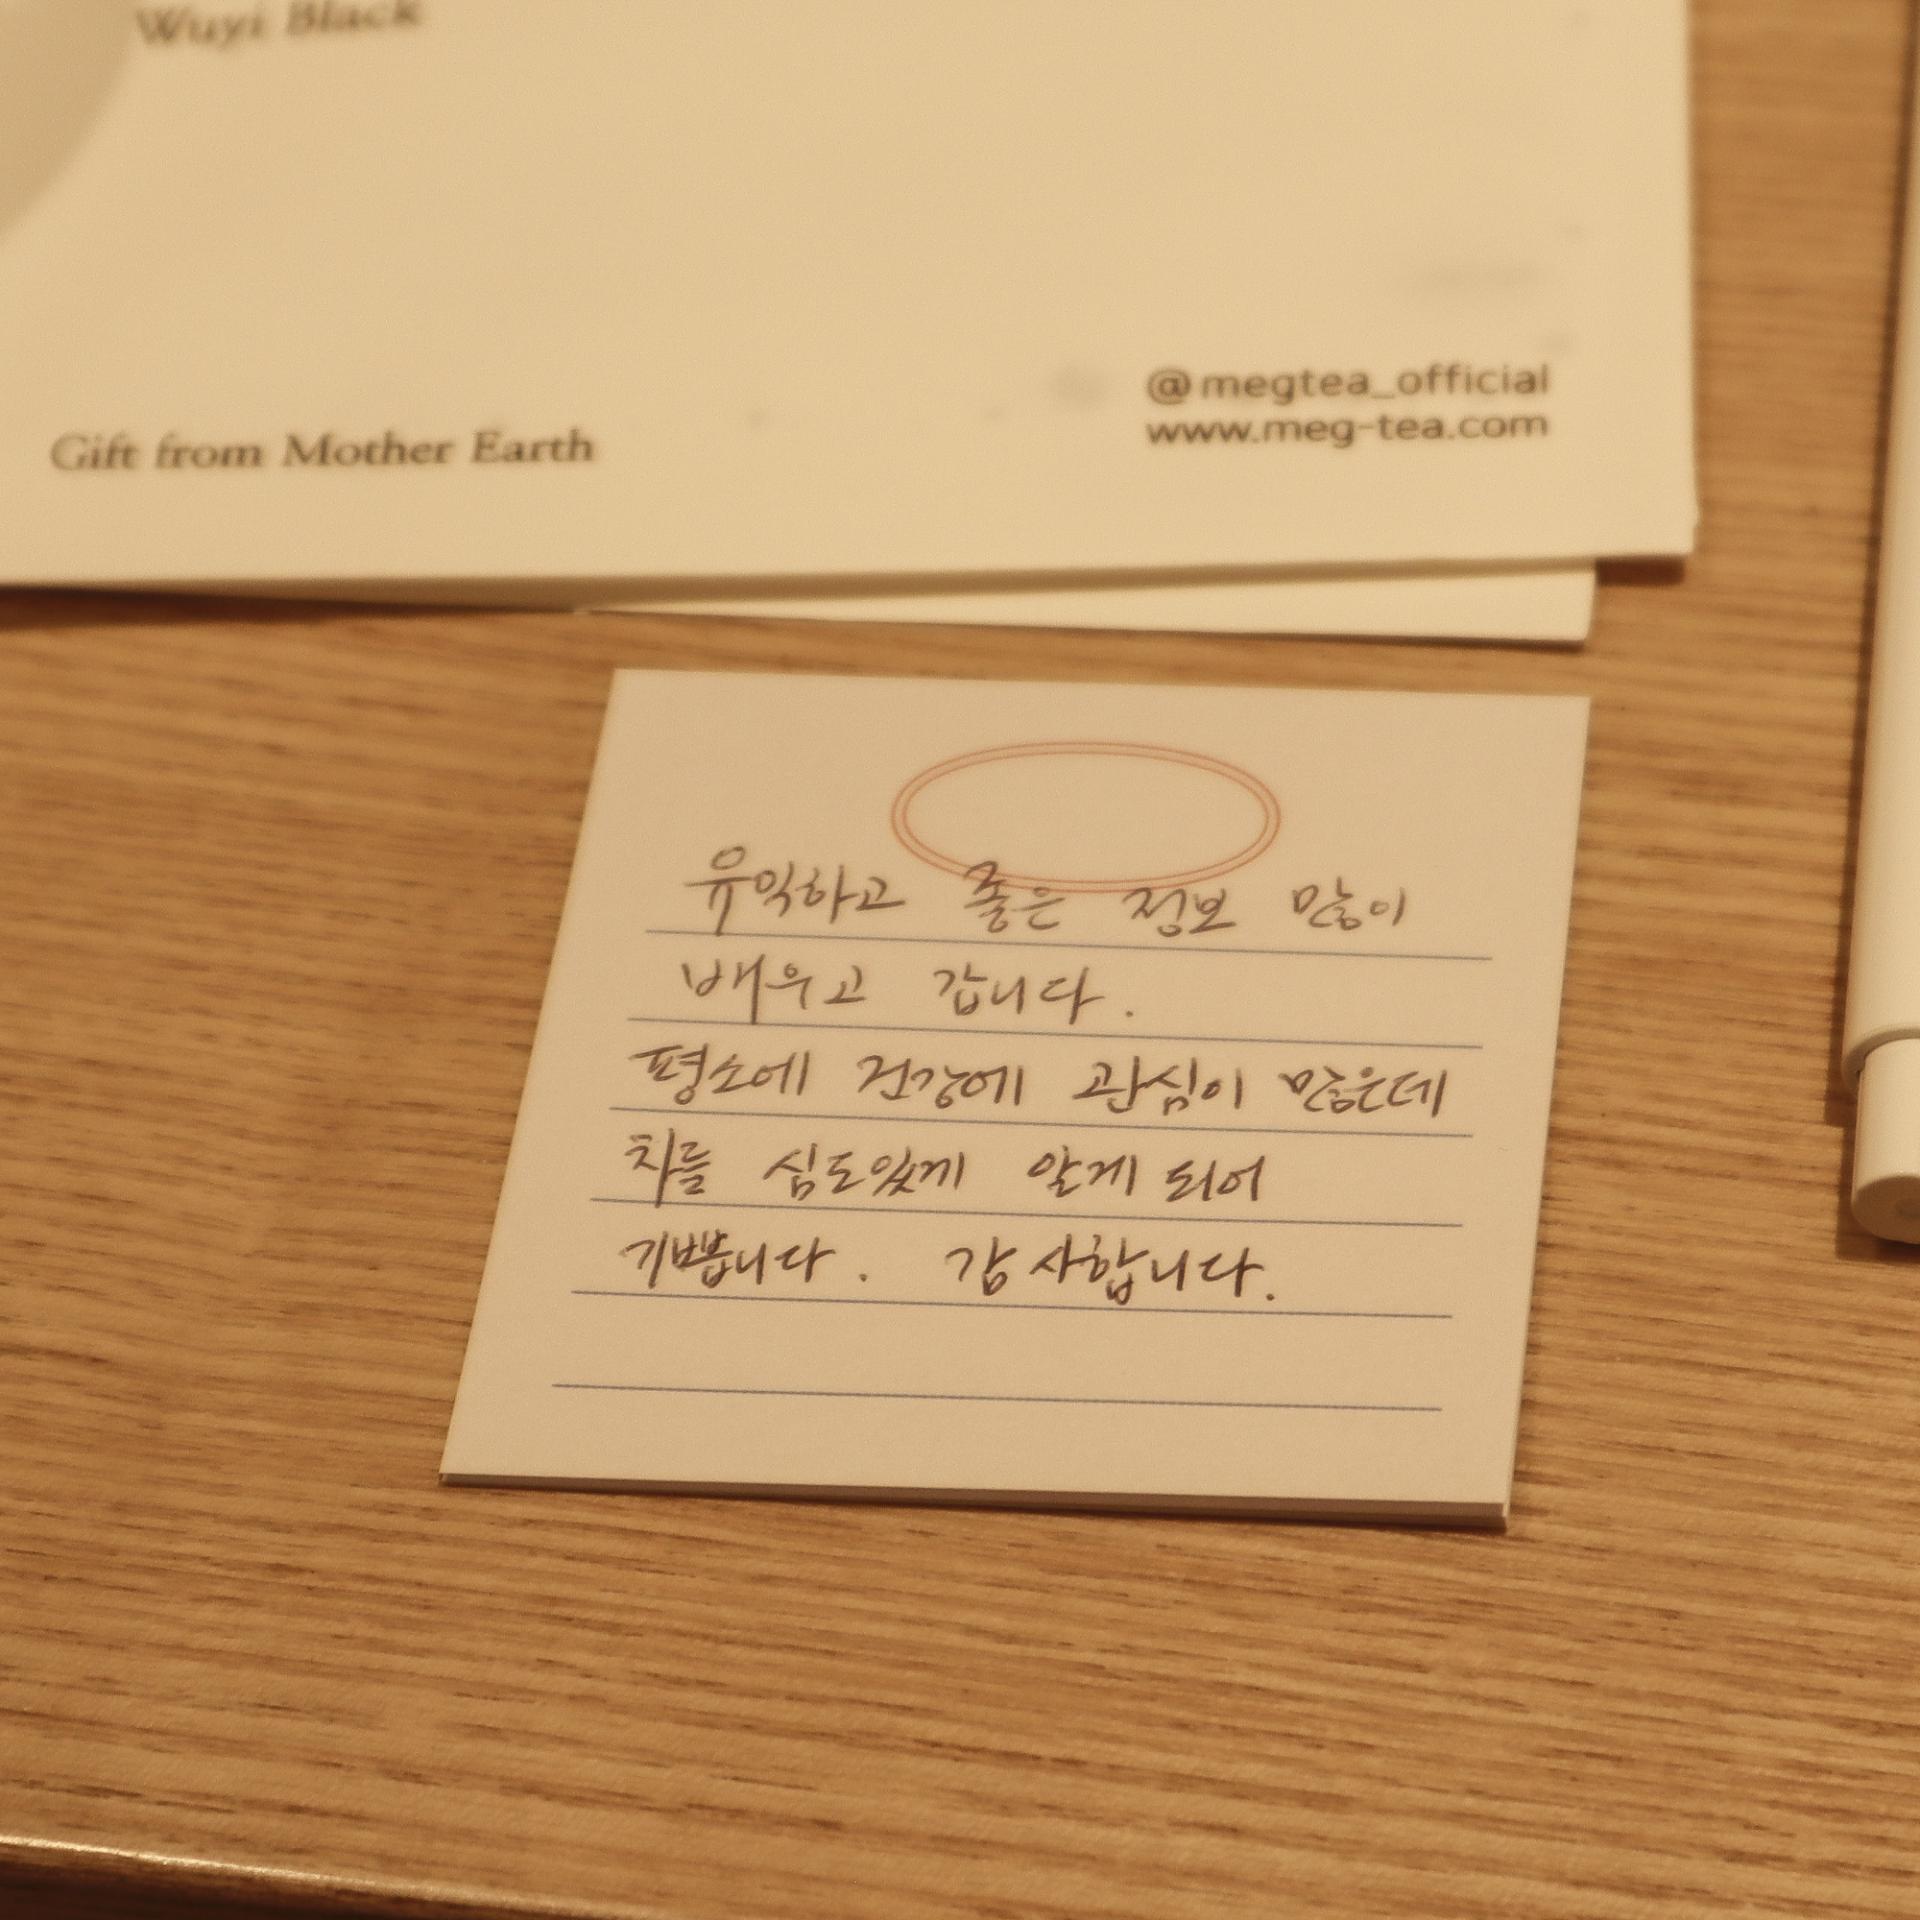 Wuyi Black
@megtea_official
www.meg-tea.com
Gift from Mother Earth
유익하고 좋은 정보 많이
배우고 갑니다.
평소에 건강에 관심이 많은데
차를 심도있게 알게 되어
기쁩니다. 감사합니다.